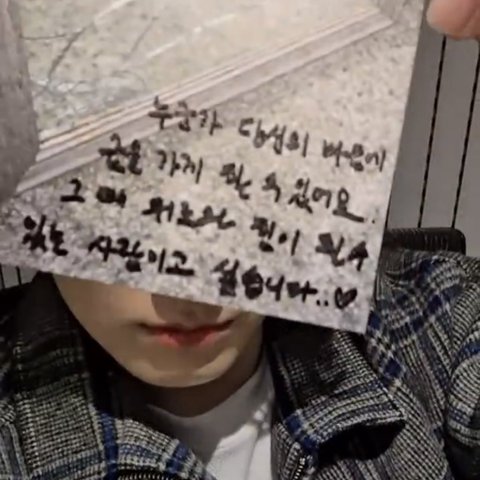 누군가 당신의 마음에
금을 가게 하는 수 있어요.
그 때 위로와 힘이 될 수
있는 사람이고 싶습니다..♡